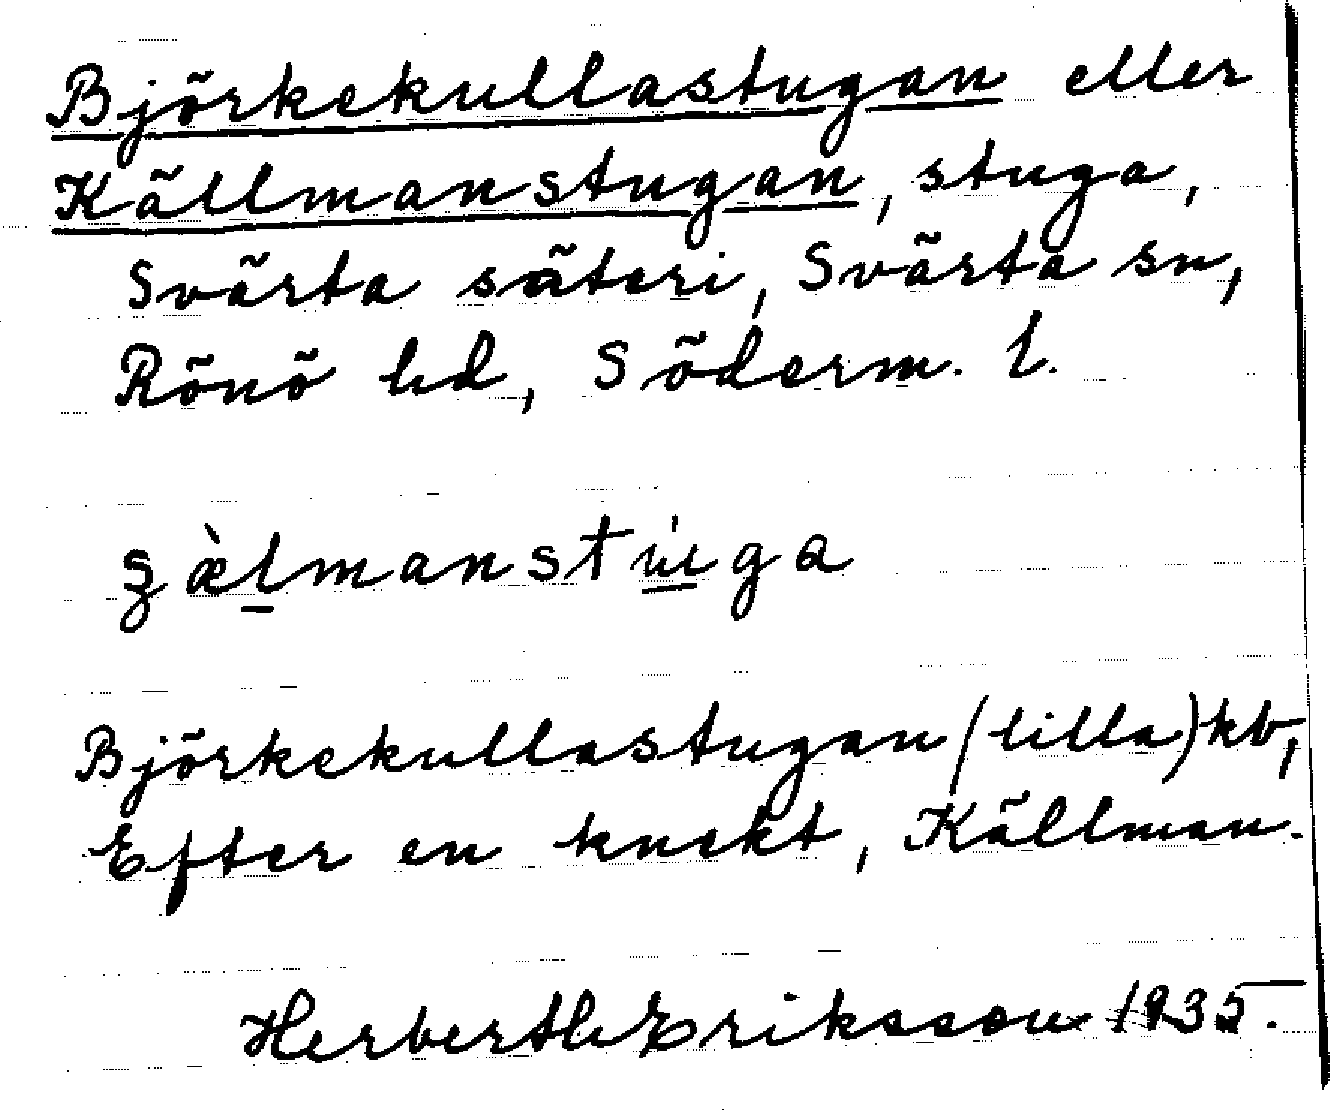 Björkekullastugan eller
Källmanstugan, stuga,
Svärta säteri, Svärta sn,
Rönö hd, Söderm. l.
Björkekullastugan (lilla) kb,
Efter en knekt, Källman.
Herbert Eriksson 1935.